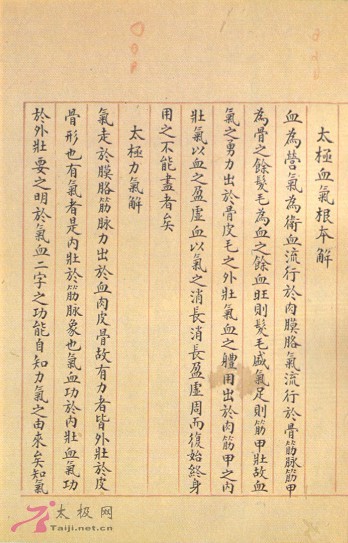 太極血氣根本解
血為營氣為衛血流行於肉膜胳氣流行於骨筋脉筋甲
為骨之餘髮毛為血之餘血旺則髮毛盛氣足則筋甲壯故血
氣之勇力出於骨皮毛之外壯氣血之體用出於肉筋甲之內
壯氣以血之盈虛血以氣之消長消長盈虛周而復始終身
用之不能盡者矣
太極力氣解
氣走於膜胳筋脉力出於血肉皮骨故有力者皆外壯於皮
骨形也有氣者是內壯於筋脉象也氣血功於內壯血氣功
於外壯要之明於氣血二字之功能自知力氣之由來矣知氣
太极网
Taiji.net.cn